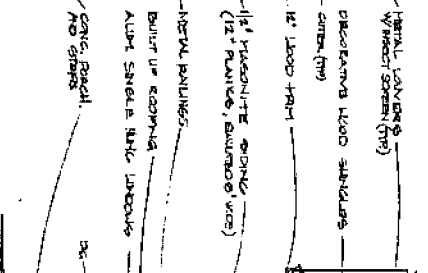 METAL LOUVERS
W/ INSECT SCREEN (TYP)
DECORATIVE WOOD SHINGLES
GUTTER (TYP)
12" WOOD TRIM
1/2" MASONITE SIDING
(12" PLANKS, 6" WIDE)
METAL RAILINGS
BUILT UP ROOFING
ALUM SINGLE HUNG WINDOWS
CONC. PORCH
AND STEPS